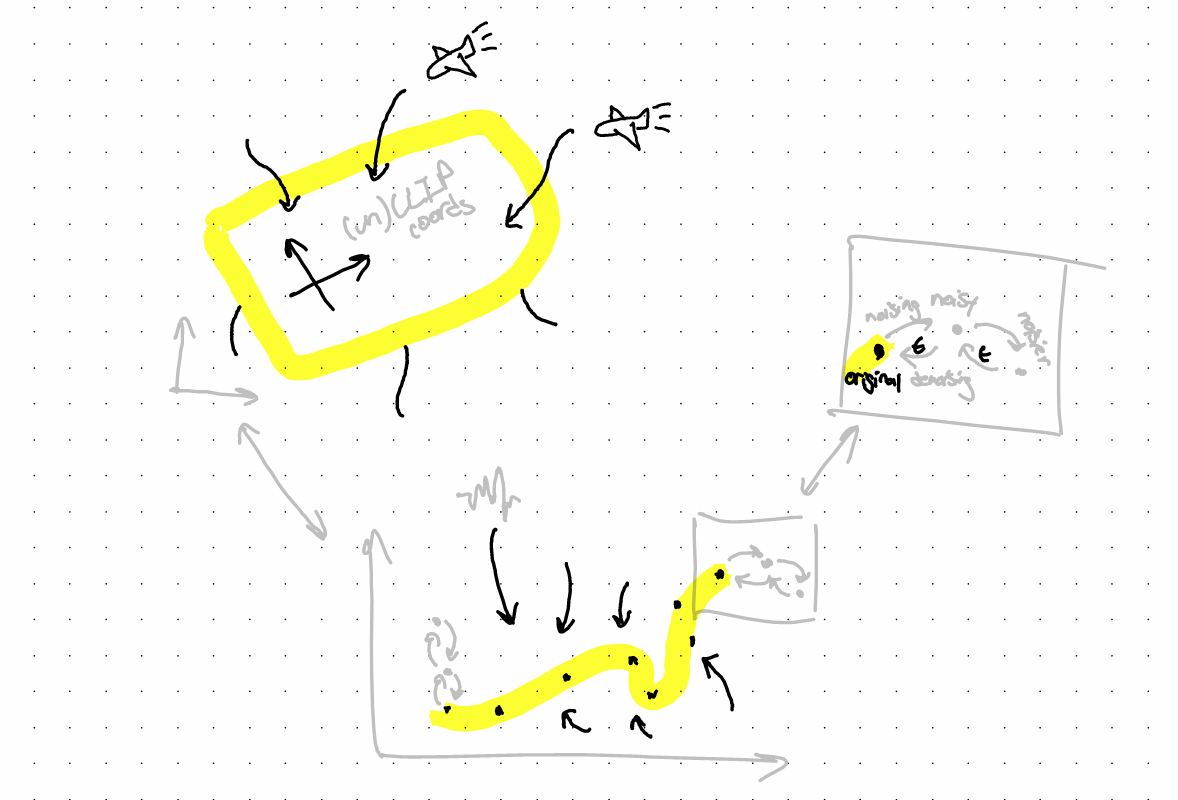 (un)CLIP
coords
noising noisy
noisier
original denoising